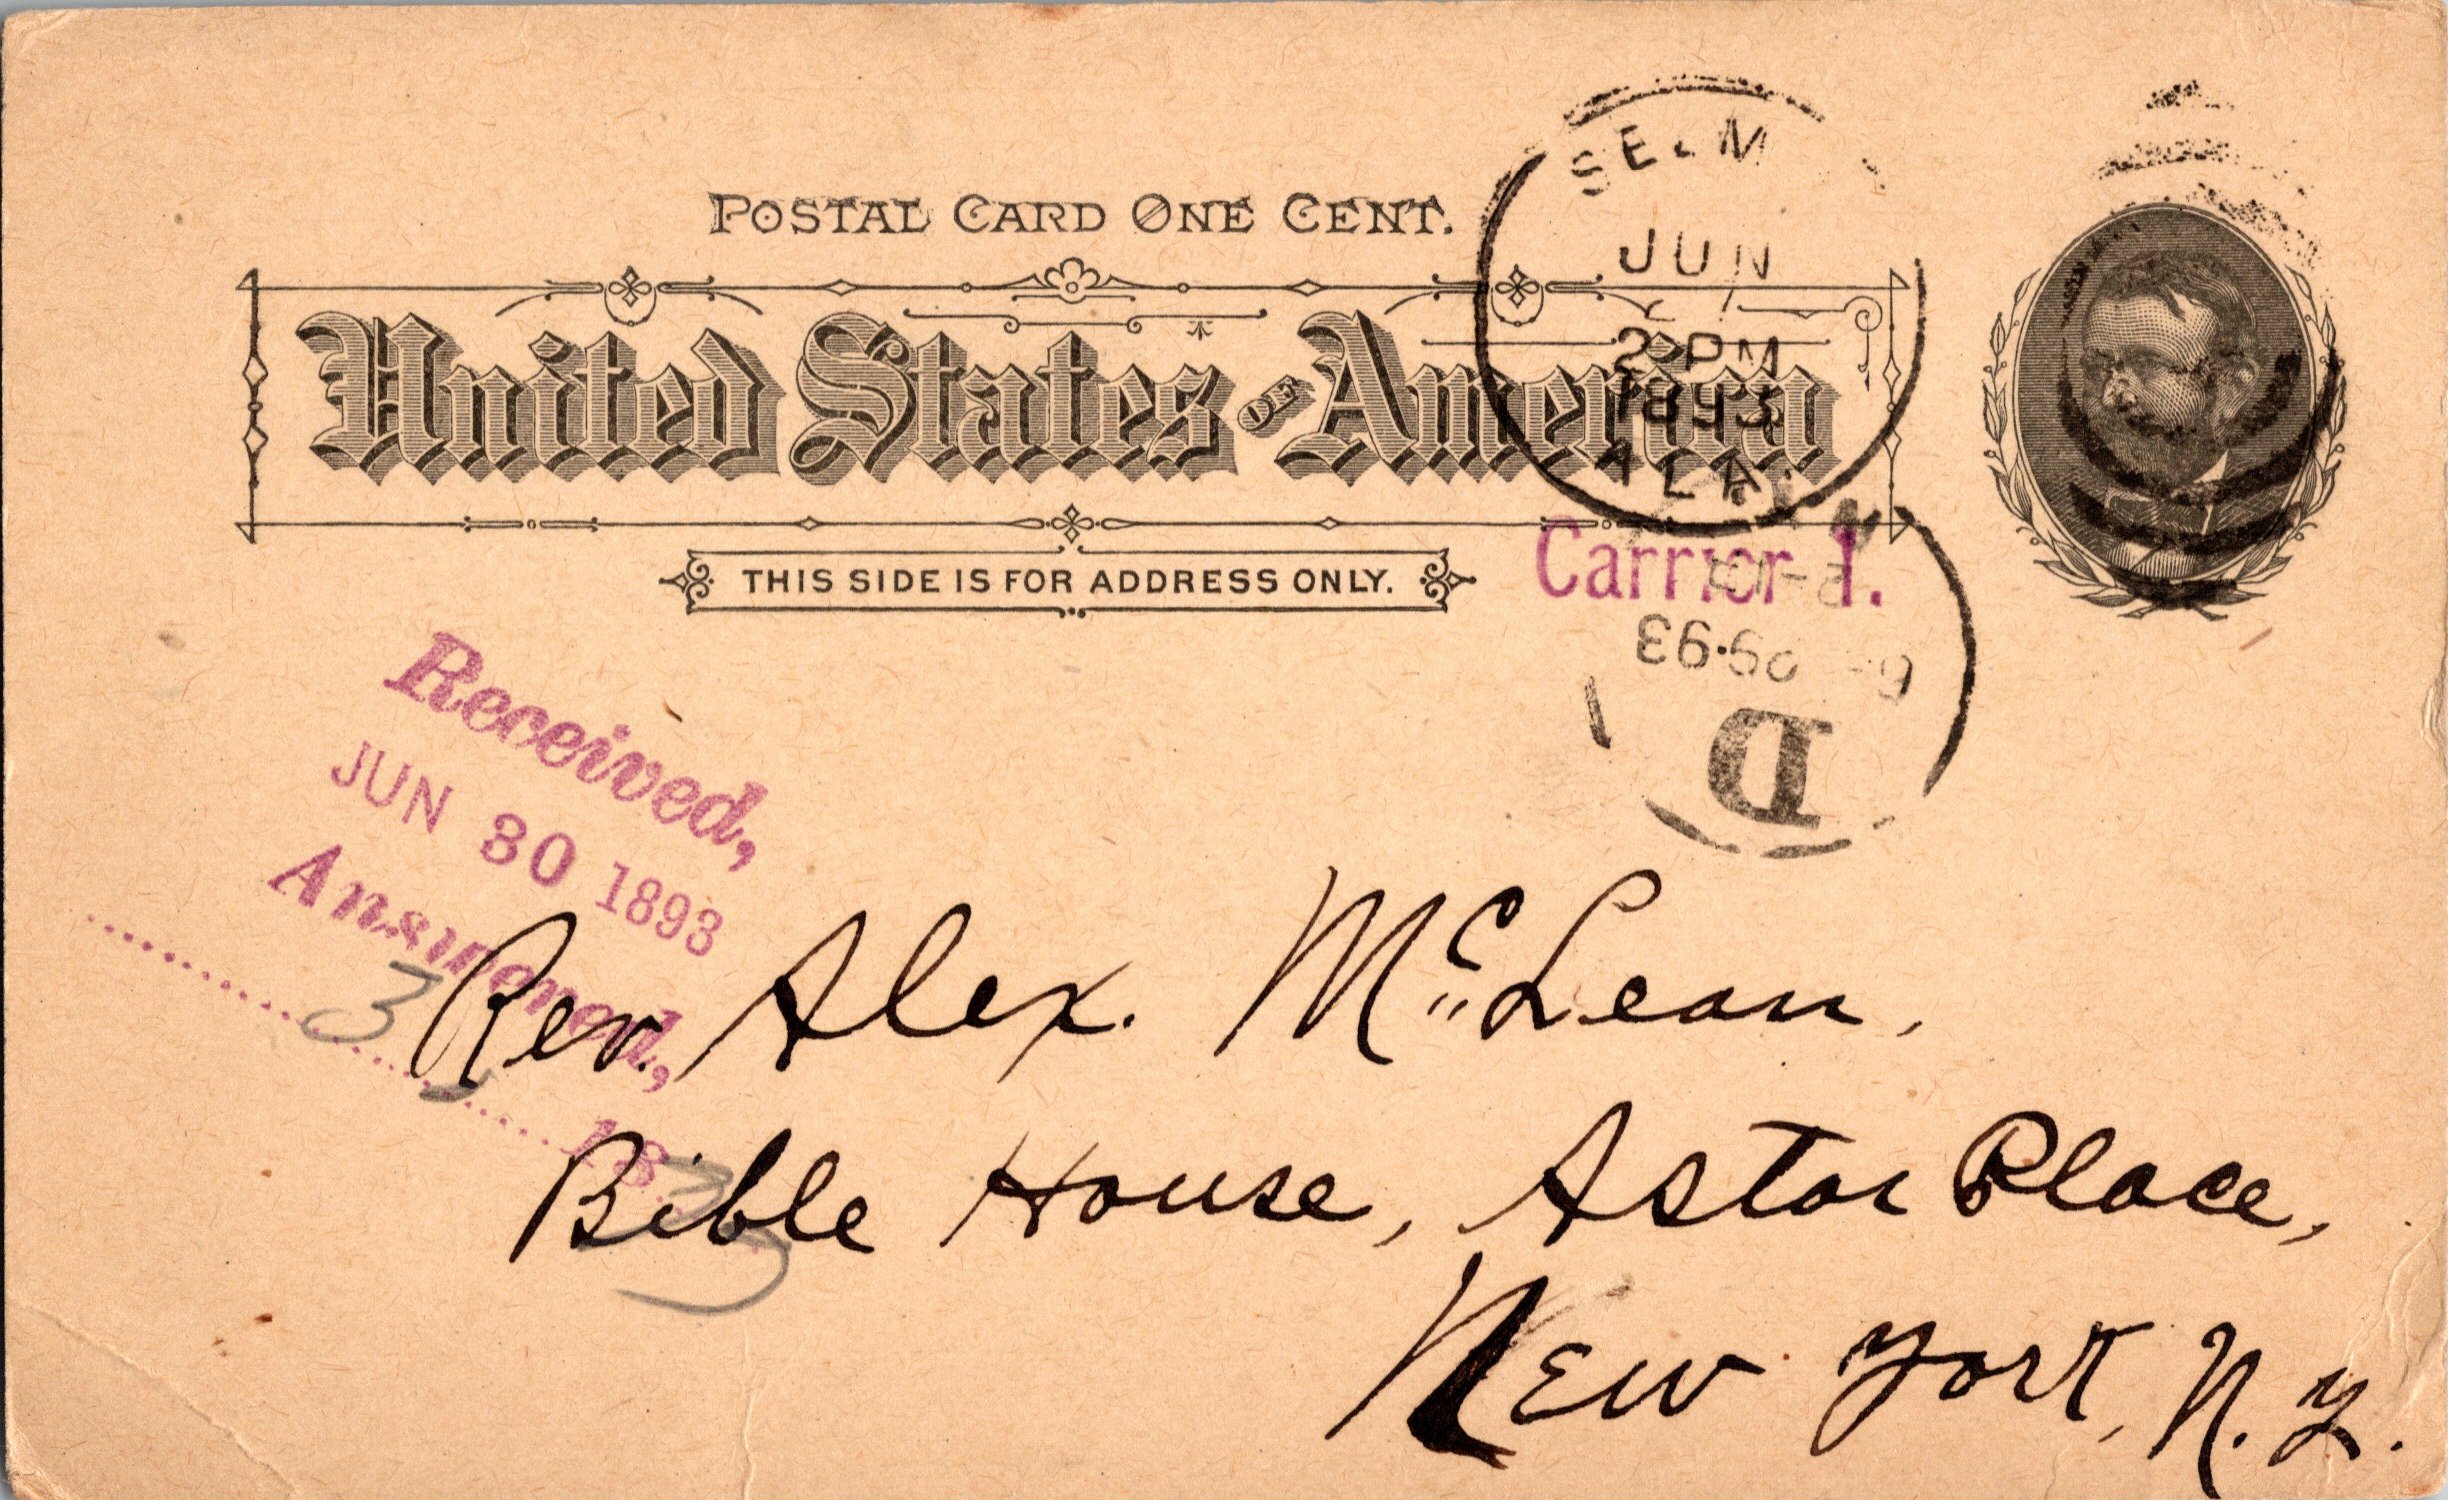 POSTAL CARD ONE CENT.
United States OF America
THIS SIDE IS FOR ADDRESS ONLY.
JUN
2 PM
1893
ALA.
Carrier 1.
D
Received,
JUN 30 1893
Answered,
Rev. Alex. McLean,
Bible House, Astor Place,
New York, N. Y.